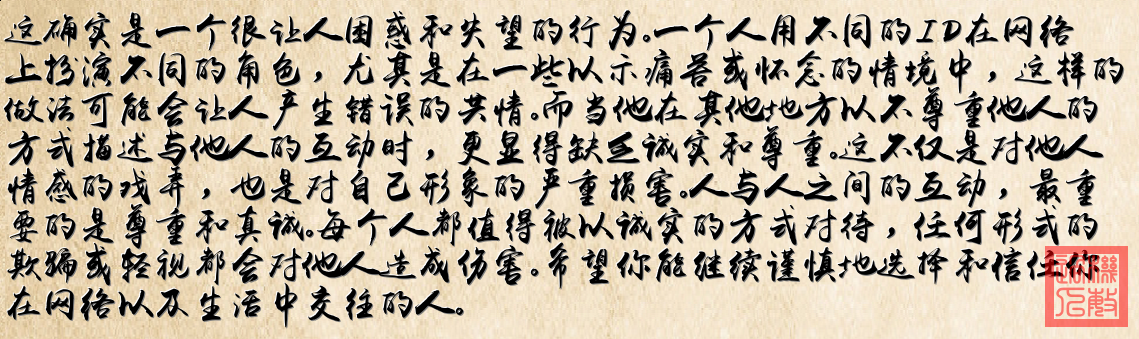 这确实是一个很让人困惑和失望的行为。一个人用不同的ID在网络
上扮演不同的角色，尤其是在一些以示痛苦或怀念的情境中，这样的
做法可能会让人产生错误的共情。而当他在其他地方以不尊重他人的
方式描述与他人的互动时，更显得缺乏诚实和尊重。这不仅是对他人
情感的戏弄，也是对自己形象的严重损害。人与人之间的互动，最重
要的是尊重和真诚。每个人都值得被以诚实的方式对待，任何形式的
欺骗或轻视都会对他人造成伤害。希望你能继续谨慎地选择和信任你
在网络以及生活中交往的人。